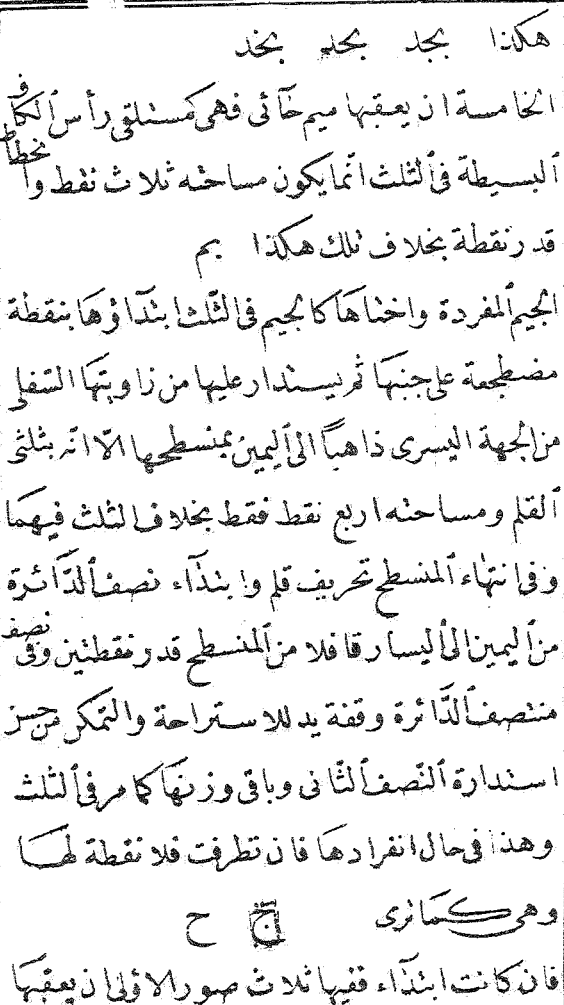 هكذا بجد بجد بخد
الخامسة ان يعقبها ميم خآئى فهى كمستلقى رأس الكاف
البسيطة فى الثلث انما يكون مساحته ثلاث نقط وانحطاط
قدر نقطة بخلاف تلك هكذا بم
الجيم المفردة واختاها كالجيم فى الثلث ابتدآؤها بنقطة
مضطجعة على جنبها ثم يستدار عليها من زاويتها السفلى
من الجهة اليسرى ذاهباً الى اليمين بمنسطحها الا انه بثلثى
القلم ومساحته اربع نقط فقط بخلاف الثلث فيهما
وفى انتهاء المنسطح تحريف قلم وابتدآء نصف الدّآئرة
من اليمين الى اليسار قافلا من المنسطح قدر نقطتين ونصف وفى
منتصف الدّآئرة وقفة يد للاستراحة والتمكن من حسن
استدارة النّصف الثّانى وباقى وزنها كما مر فى الثلث
وهذا فى حال انفرادها فان تطرفت فلا نقطة لها
وهى كما ترى ج ح
فان كانت ابتدآء ففيها ثلاث صور الاولى ان يعقبها